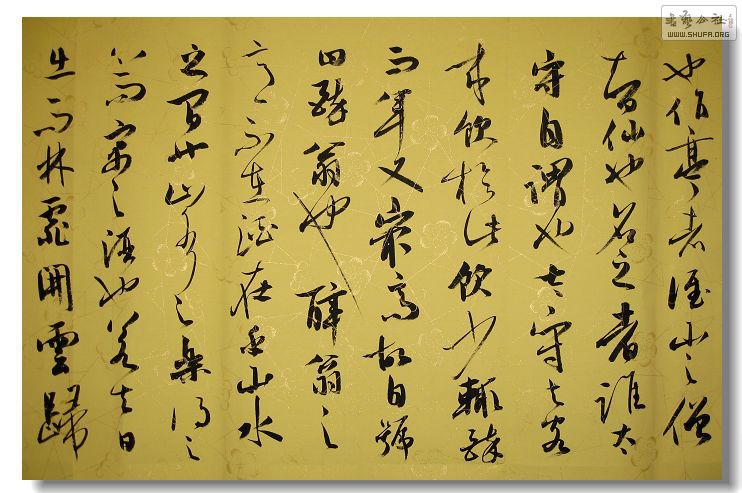 也作亭者谁山之僧
智仙也名之者誰太
守自謂也太守与客
来飲於此飲少輒醉
而年又最高故自號
曰醉翁也醉翁之
意不在酒在乎山水
之间也山水之樂得之
心而寓之酒也若夫日
出而林霏開雲歸
书艺公社
WWW.SHUFA.ORG